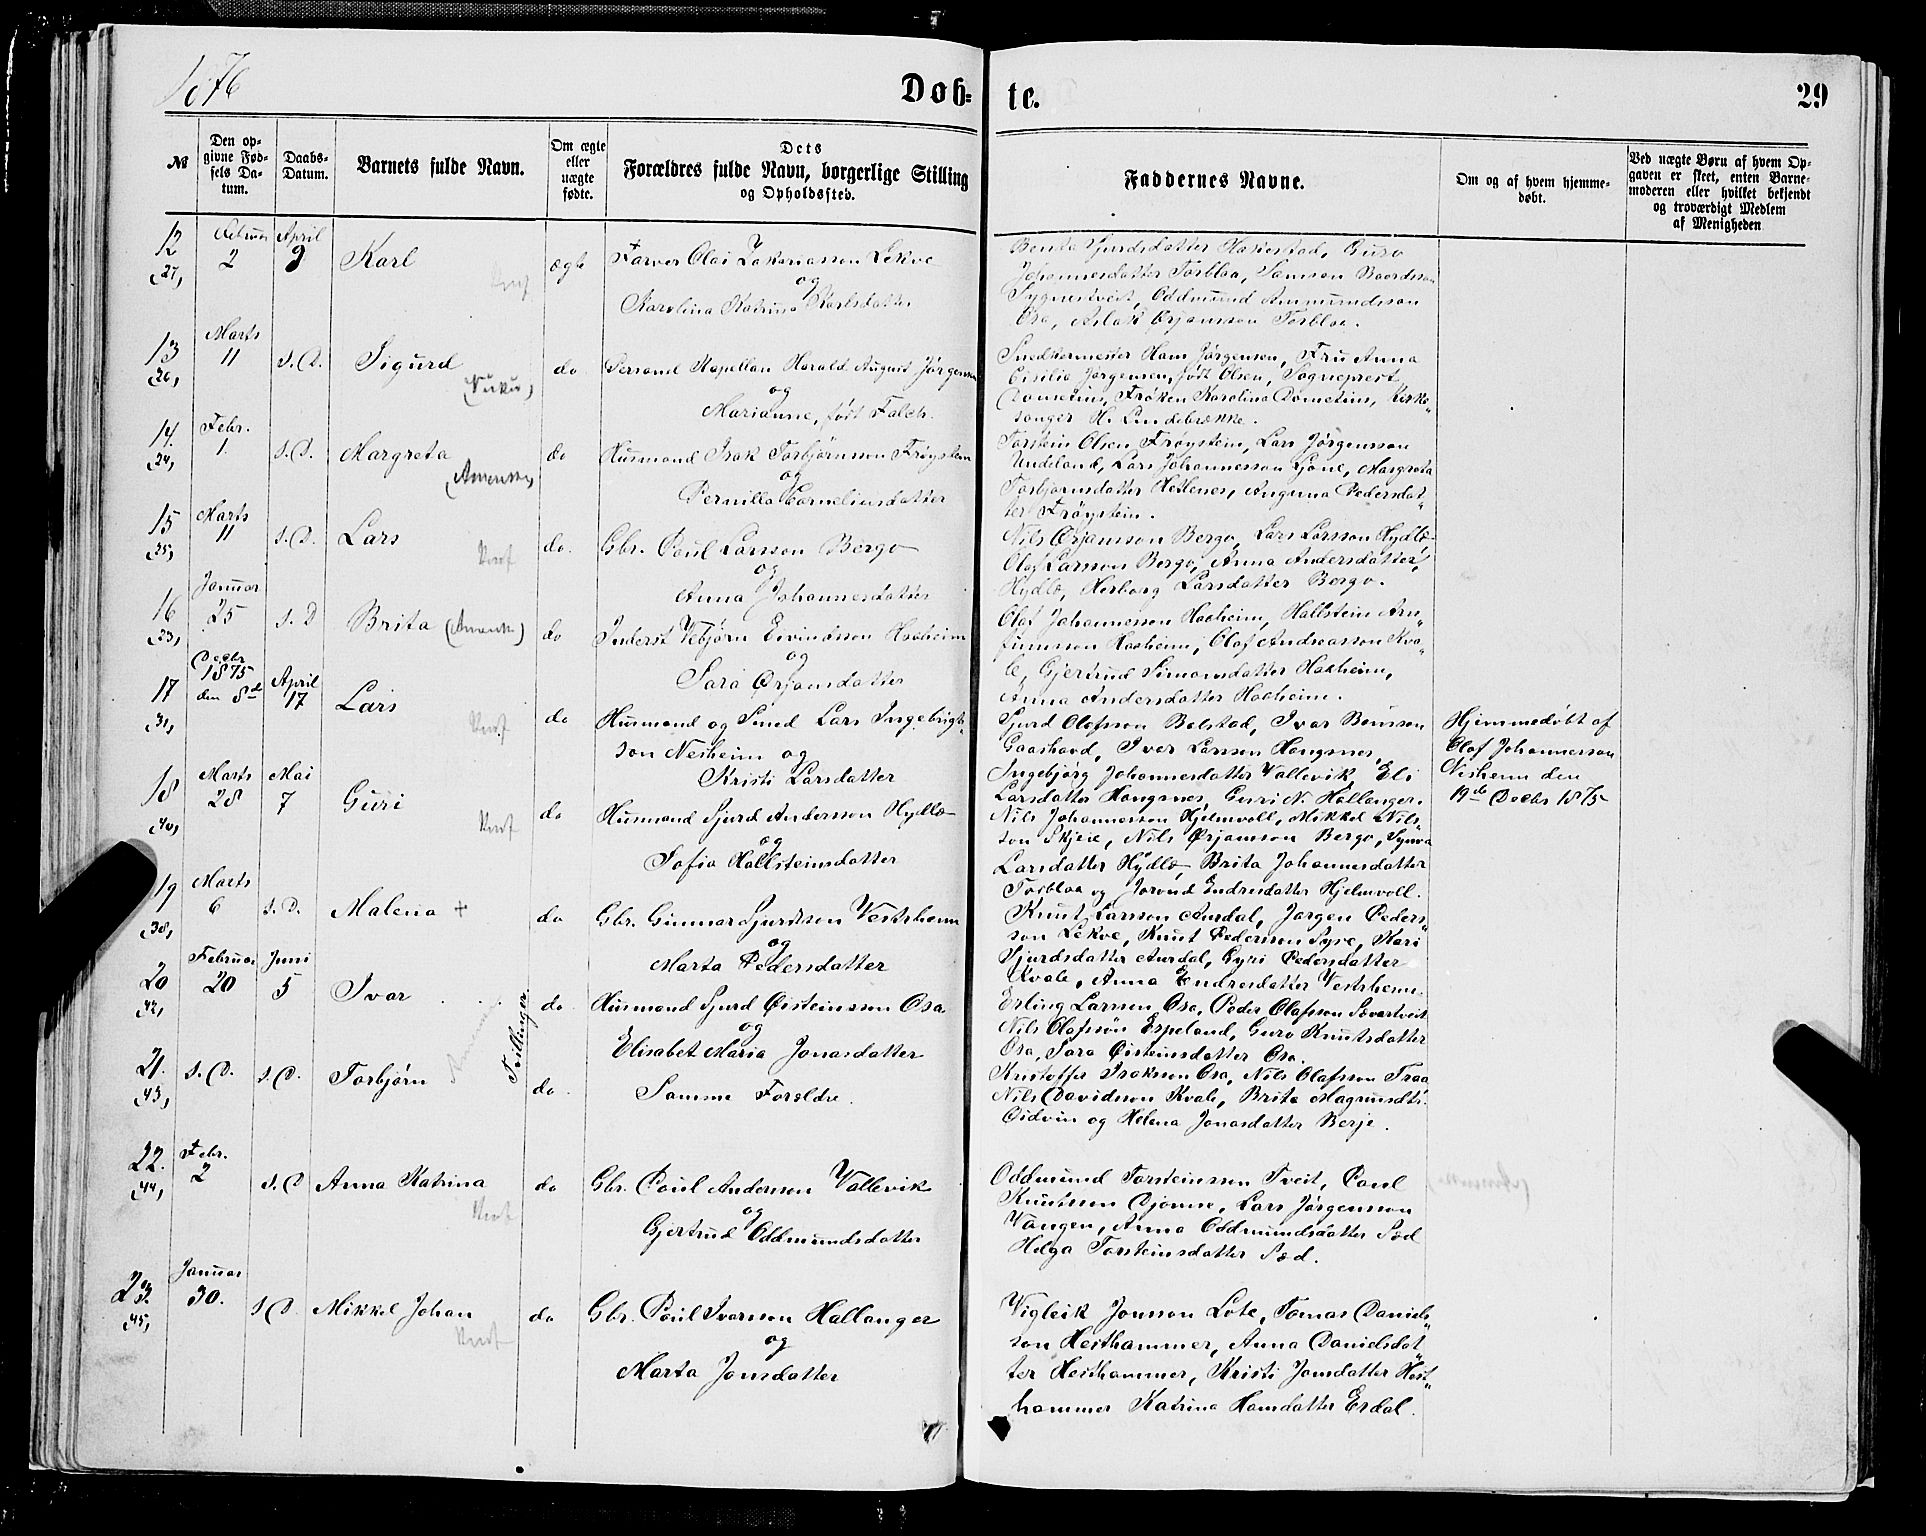 1876
Døb=
te.
29
№
Den op-
givne Fød-
sels Da-
tum.
Daabs-
Datum.
Barnets fulde Navn.
Om ægte
eller
uægte
fødte.
Dets
Forældres fulde Navn, borgerlige Stilling
og Opholdssted.
Faddernes Navne.
Om og af hvem hjemme-
døbt.
Ved uægte Børn af hvem Op-
gaven er skeet, enten Barne-
moderen eller hvilket bekjendt
og troværdigt Medlem
af Menigheden
12
(27)
Februar
2
April
9
Karl
ægte
Farver Olai Zakariasson Lekve
og
Karolina Katrina Karlsdatter
Sjurdsdatter Hakestad, Guro
Johannesdatter Torblaa, Samson Baardsson
Tygnestveit, Oddmund Ammundsson
Osa, Aslak Ørjansson Torblaa.
13
(26)
Marts
11
s.D.
Sigurd
do
Personel Kapellan Harald August Jørgensen
og
Marianne, født Falch.
Snedkermester Hans Jørgensen, Fru Anna
Cisilia Jørgensen, født Olsen, Sogneprest
Dometius, Frøken Karolina Dometius, Kirke„
sanger H. Lindebrække.
14.
(24)
Febr.
1.
s.D.
Margreta
do
Husmand Isak Torbjørnson Frøystein
og
Pernilla Corneliusdatter
Torstein Olsen Frøystein, Lars Jørgensson
Undeland, Lars Johannesson Tjone, Margreta
Torbjørnsdatter Hetlenes, Anguna Pedersdat„
ter Frøystein.
15
(25)
Marts
11
s.D.
Lars
do.
Gbr. Poul Larsson Bergo
og
Anna Johannesdatter
Nils Ørjansson Bergo, Lars Larsson Hydle
Olaf Larsson Bergo, Anna Andersdatter
Hydle, Herborg Larsdatter Bergo.
16
(23)
Januar
25
s.D
Brita
do
Inderst Vebjørn Eivindsson Haaheim
og
Sara Ørjansdatter
Olaf Johannesson Haaheim, Hallstein Arn„
finnsson Haaheim, Olaf Andreasson Kva„
le, Gjertrud Simonsdatter Haaheim,
Anna Andersdatter Haaheim.
17
(31)
Decbr
1875
den 8de
April
17
Lars
do
Husmand og Smed Lars Ingebrigt„
son Nesheim og
Kristi Larsdatter
Sjurd Olafsson Bolstad, Ivar Bensson
Gaashovd, Ivar Larsson Hangsnes,
Ingebjørg Johannesdatter Vallevik, Eli
Larsdatter Hangsnes, Guri N. Hallanger.
Hjemmedøbt af
Olaf Johannesson
Nesheim den
19de Decbr 1875
18
(40)
Marts
28
Mai
7
Guri
do
Husmand Sjurd Andersson Hydle
og
Sofia Hallsteinsdatter
Nils Johannesson Hjelmvoll, Mikkel Nils„
son Skjeie, Nils Ørjansson Bergo, Synva
Larsdatter Hydle, Brita Johannesdatter
Torblaa og Jorund Endresdatter Hjelmvoll.
19
(38)
Marts
6
s.D.
Malena +
do
Gbr. Gunnar Sjurdsson Vestrheim
og
Marta Pedersdatter
Knut Larsson Aurdal, Jørgen Peders„
son Lekve, Knut Pedersson Syre, Kari
Sjurdsdatter Aurdal, Gyri Pedersdatter
Kvale, Anna Endresdatter Vestrheim.
20
(42)
Februar
20
Juni
5
Ivar
Tvillinger
do
Husmand Sjurd Øisteinsson Osa
og
Elisabet Maria Jonasdatter
Erling Larsson Osa, Peder Olafsson Svartveit
Nils Olafsson Espeland, Guro Knutsdatter
Osa, Sara Øisteinsdatter Osa.
21.
(43)
s.D.
s.D.
Torbjørn
do.
Samme Forældre.
Kristoffer Isaksson Osa, Nils Olafsson Traa
Nils Davidsson Kvale, Brita Magnusdtr.
Eidvin og Helena Jonasdatter Berje.
22.
(44)
Febr.
2
s.D
Anna Katrina
do
Gbr. Poul Andersson Vallevik
og
Gjertrud Oddmundsdatter
Oddmund Torsteinsson Tveit, Poul
Knutsson Djønne, Lars Jørgensson
Vangen, Anna Oddmundsdatter Sæd
Helga Torsteinsdatter Sæd.
23.
(45)
Januar
30.
s.D.
Mikkel Johan
do
Gbr. Poul Ivarsson Hallanger
og
Marta Jonsdatter
Vigleik Jonsson Lote, Tomas Daniels„
son Hesthammer, Anna Danielsdat„
ter Hesthammer, Kristi Jonsdatter Hest„
hammer Katrina Hansdatter Erdal.